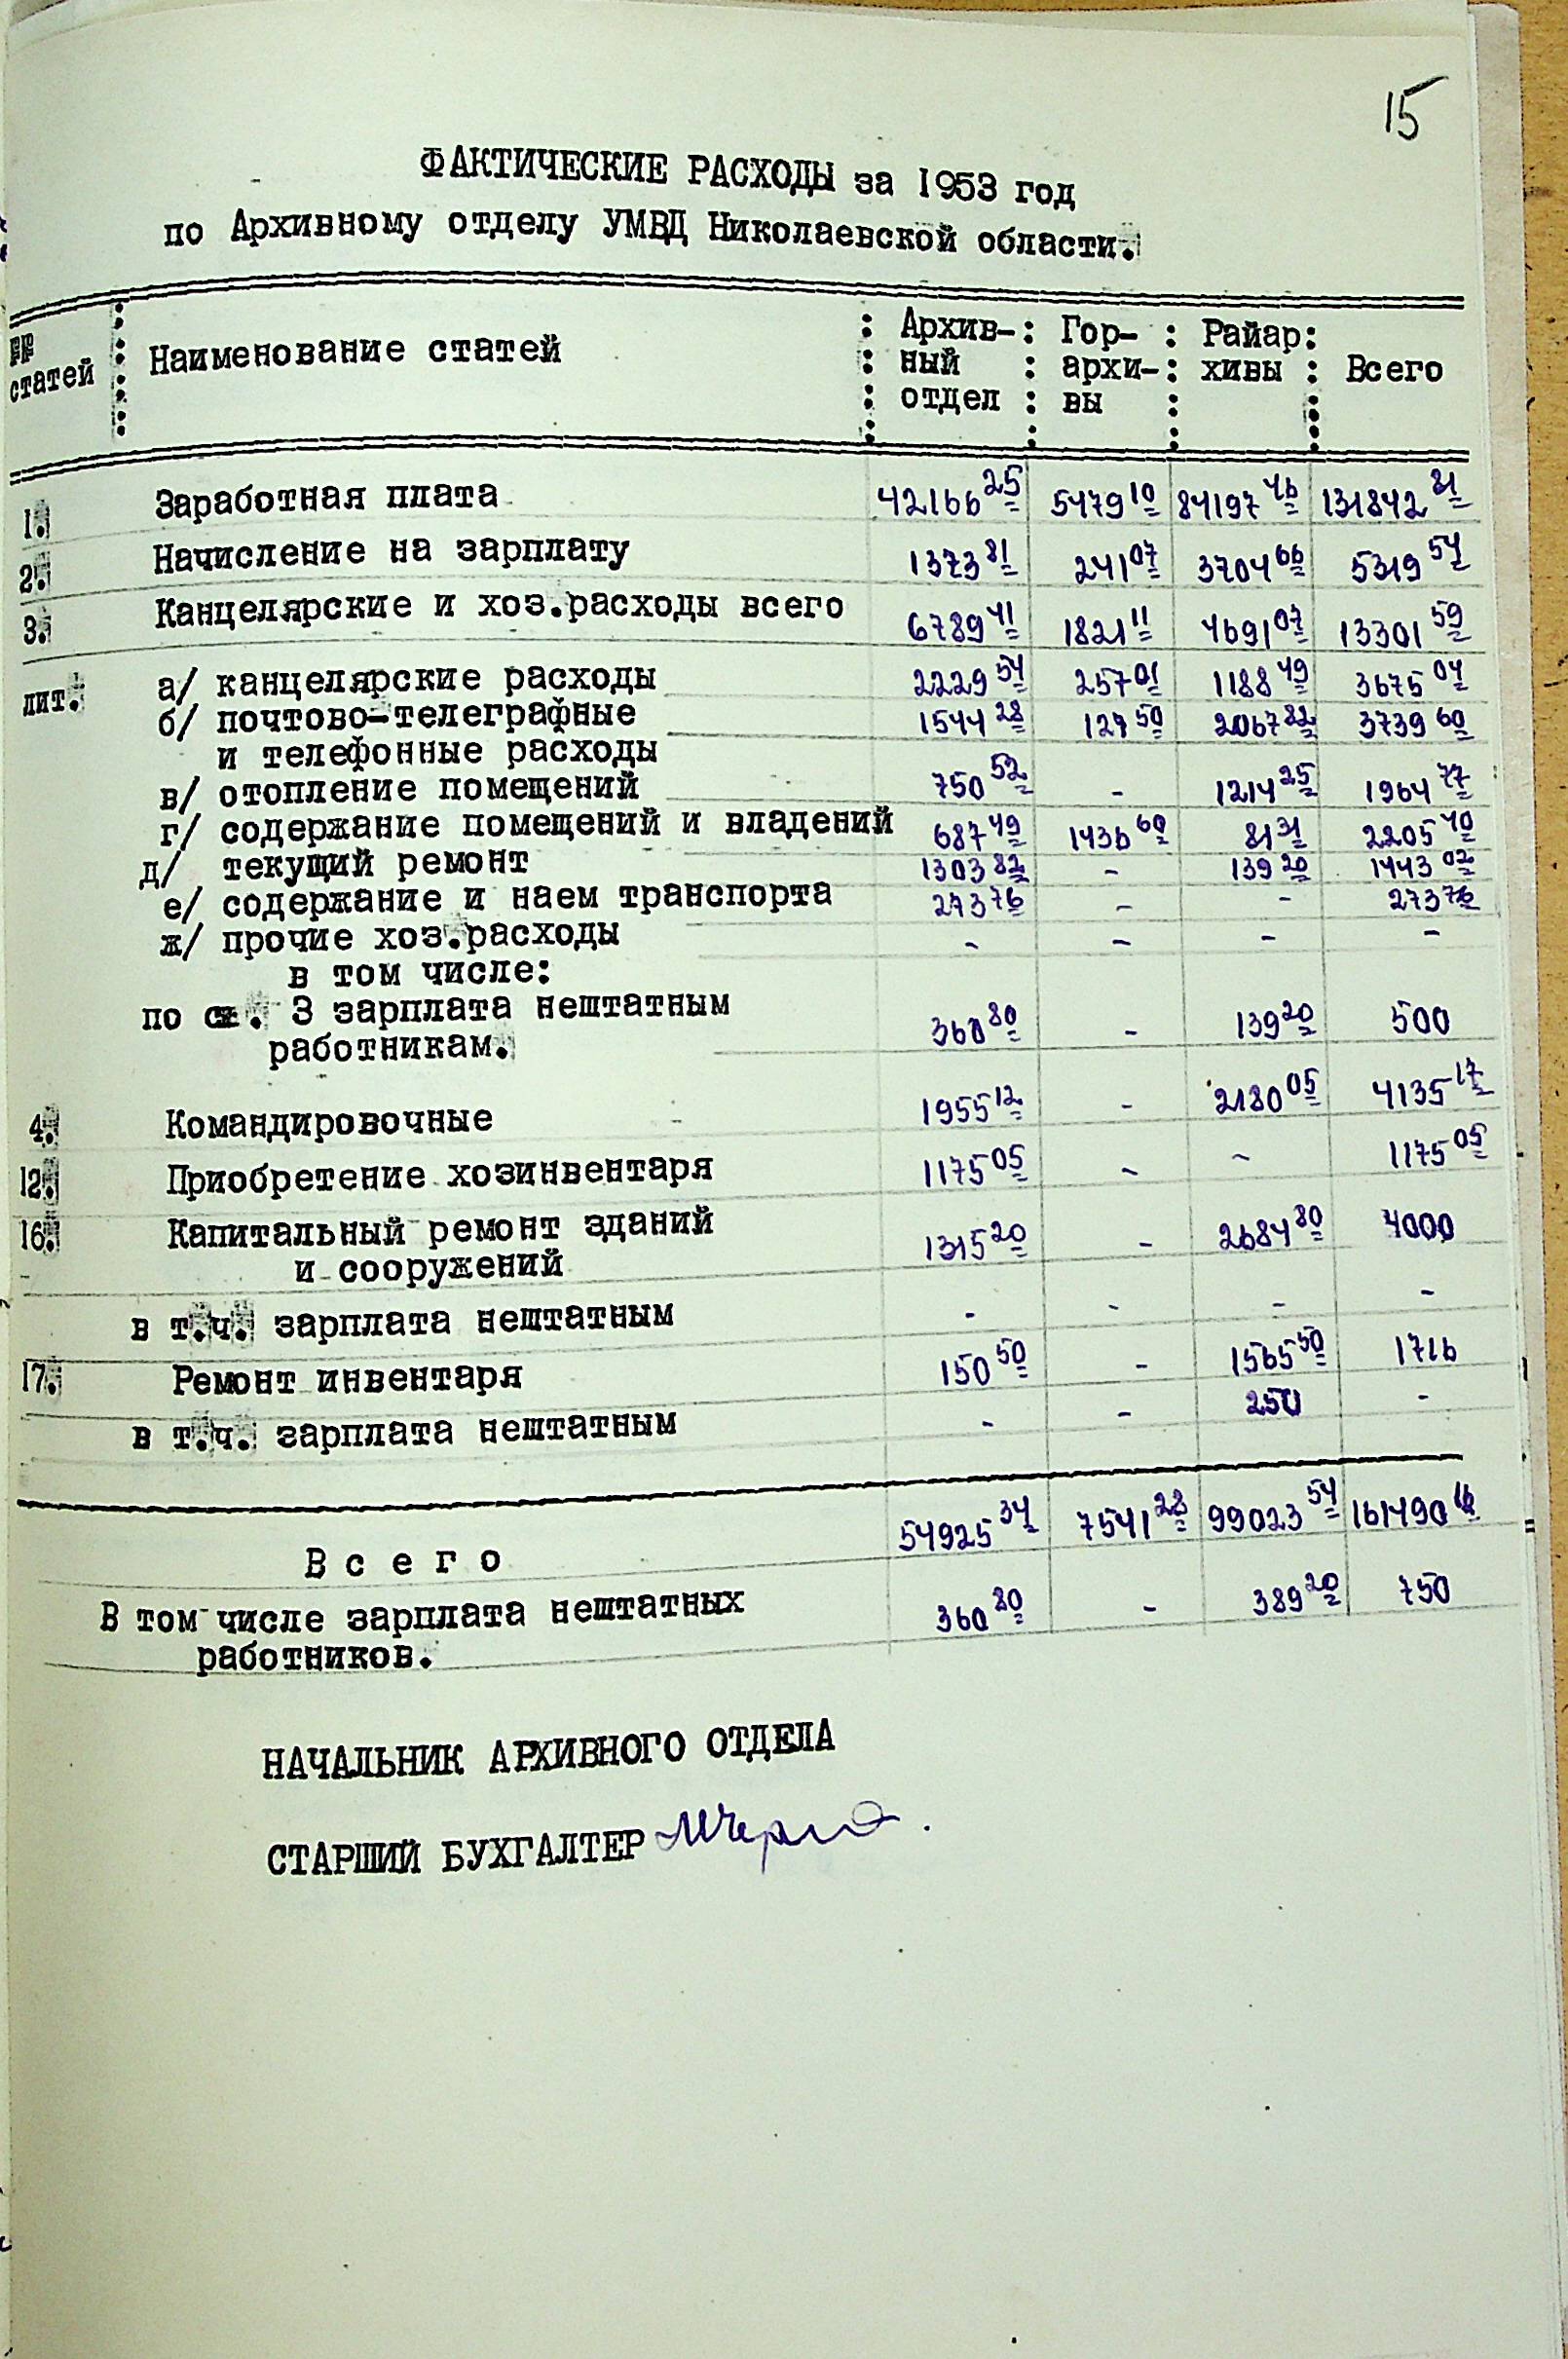 15
ФАКТИЧЕСКИЕ РАСХОДЫ за 1953 год
по Архивному отделу УМВД Николаевской области.
статей : Наименование статей : Архив- : Гор- : Райар: Всего
ный : архи- : хивы :
отдел : вы :
1. Заработная плата 42166 25 5479 10 84197 46 131842 81
2. Начисление на зарплату 1373 81 241 07 3704 66 5319 54
3. Канцелярские и хоз.расходы всего 6789 41 1821 11 4691 07 13301 59
лит. а/ канцелярские расходы 2229 54 257 01 1188 49 3675 04
б/ почтово-телеграфные 1544 28 127 50 2067 82 3739 60
и телефонные расходы
в/ отопление помещений 750 52 - 1214 25 1964 77
г/ содержание помещений и владений 687 49 1436 60 81 31 2205 40
д/ текущий ремонт 1303 82 - 139 20 1443 02
е/ содержание и наем транспорта 273 76 - - 273 76
ж/ прочие хоз.расходы - - - -
в том числе:
по ст. 3 зарплата нештатным 360 80 - 139 20 500
работникам.
4. Командировочные 1955 12 - 2180 05 4135 17
12. Приобретение хозинвентаря 1175 05 - - 1175 05
16. Капитальный ремонт зданий 1315 20 - 2684 80 4000
и сооружений
в т.ч. зарплата нештатным - - - -
17. Ремонт инвентаря 150 50 - 1565 50 1716
в т.ч. зарплата нештатным - - 250 -
Всего 54925 34 7541 28 99023 54 161490 16
В том числе зарплата нештатных 360 80 - 389 20 750
работников.
НАЧАЛЬНИК АРХИВНОГО ОТДЕЛА
СТАРШИЙ БУХГАЛТЕР